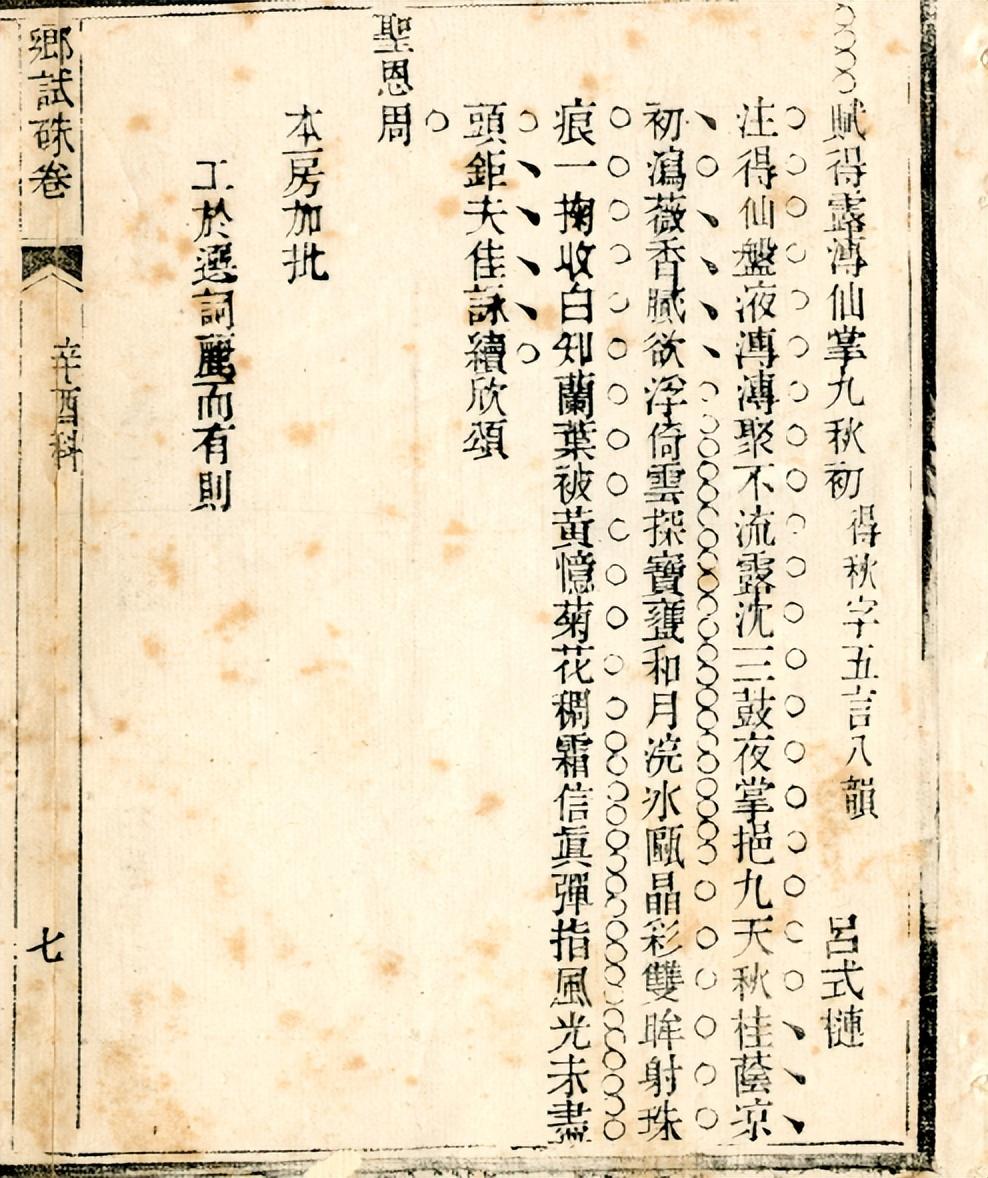 賦得露漙仙掌九秋初 得秋字五言八韻 呂式槤
注得仙盤液漙漙聚不流露沈三鼓夜掌挹九天秋桂蔭涼
初瀉薇香膩欲浮倚雲探寶甕和月浣冰甌晶彩雙眸射珠
痕一掬收白知蘭葉被黃憶菊花稠霜信眞彈指風光未盡
頭鉅夫佳詠續欣頌
聖恩周
本房加批
工於選詞麗而有則
鄉試硃卷
辛酉科
七